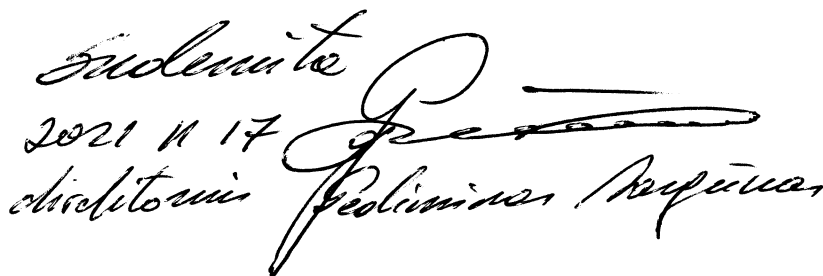 Suderinta
2021 11 17
direktorius Gediminas Sargūnas